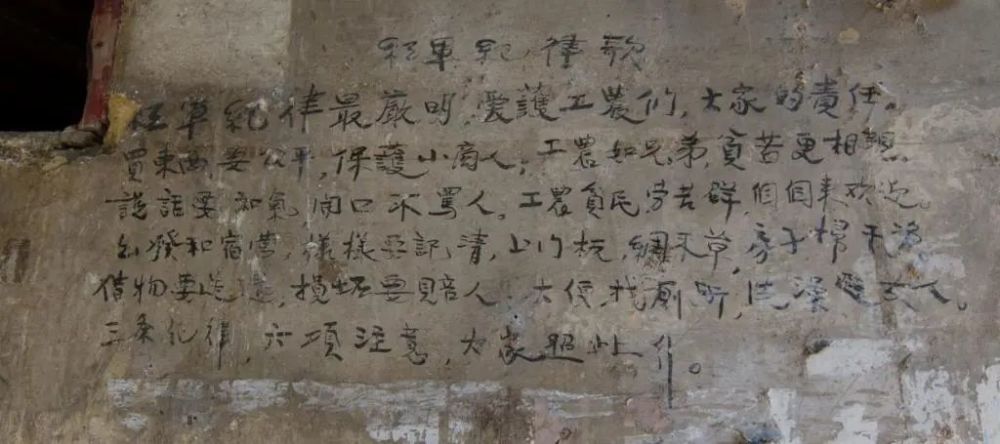 红軍纪律歌
红軍紀律最嚴明,愛護工農们,大家的責任。
買東西要公平,保護小商人,工農如兄弟,貧苦更相親。
説話要和氣,開口不罵人。工農貧民劳苦群,個個来欢迎。
出發和宿营,樣樣要記清,上门板,綑禾草,房子掃干净。
借物要送还,損坏要賠人。大便找厕所,洗澡避女人。
三条纪律,六項注意,大家照此作。